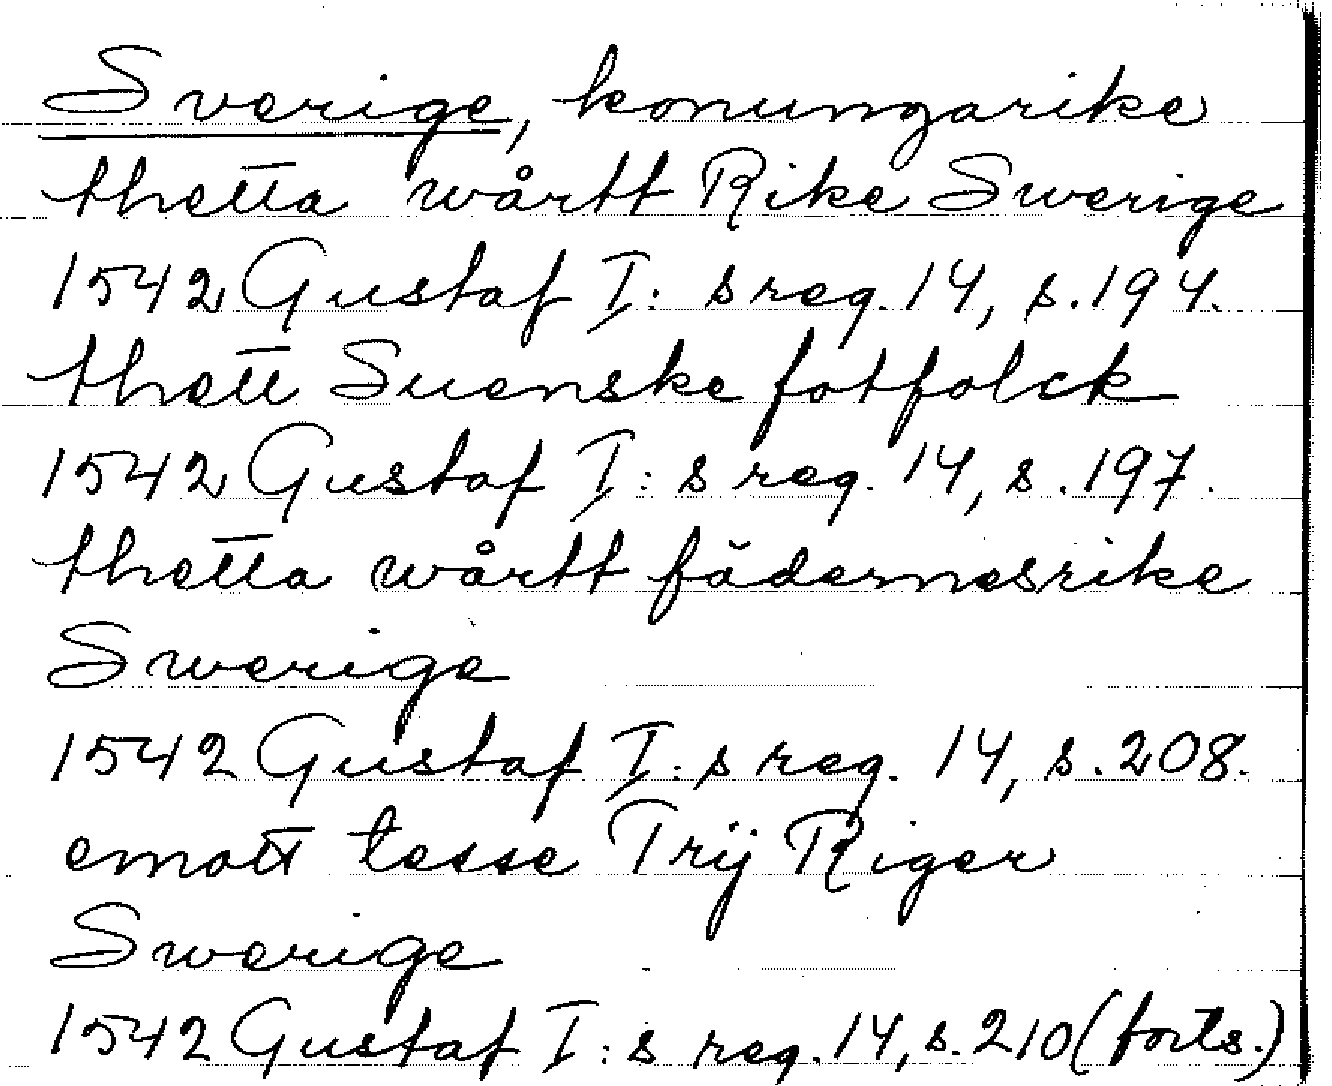 Sverige, konungarike
thetta wårtt Rike Swerige
1542 Gustaf I: s reg. 14, s. 194.
thett Suenske fotfolck
1542 Gustaf I: s reg. 14, s. 197.
thetta wårtt fädernesrike
Swerige
1542 Gustaf I: s reg. 14, s. 208.
emott tesse Trij Riger
Swerige
1542 Gustaf I: s reg. 14, s. 210 (forts.)